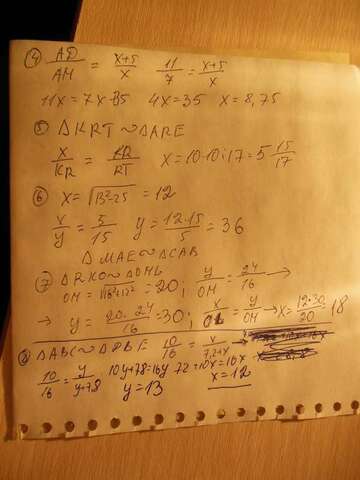 ④ AD/AM = x+5/x 11/7 = x+5/x
11x = 7x+35 4x=35 x=8,75
⑤ ΔKRT ~ ΔARE
x/KR = KR/RT x=10·10:17=5 15/17
⑥ x=√13²-25 =12
x/y = 5/15 y= 12·15/5 = 36
ΔMAE~ΔCAB
⑦ ΔRKO~ΔOML y/OM = 24/16 →
OM = √16²+12² =20;
→ y= 20·24/16 =30; x/OL = y/OM → x= 12·30/20 = 18
⑧ ΔABC~ΔDBE 10/16 = x/7,2+x →
10/16 = y/y+7,8 10y+78=16y 72+10x=16x
y=13 x=12